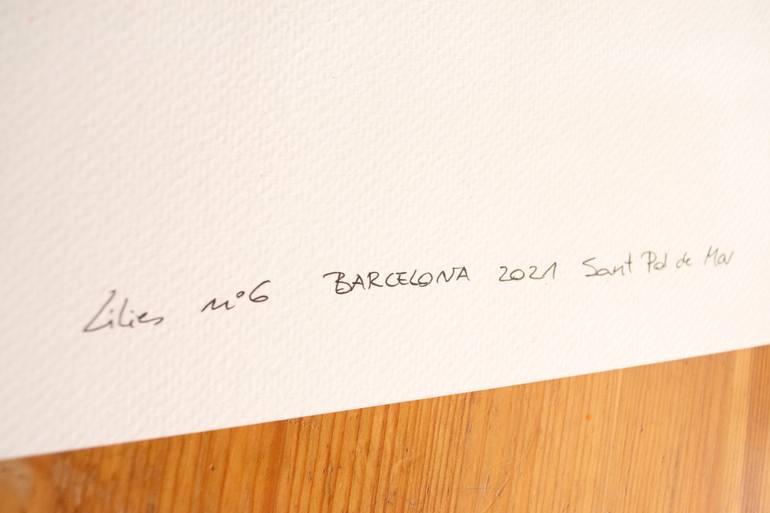 Lilies nº6 BARCELONA 2021 Sant Pol de Mar